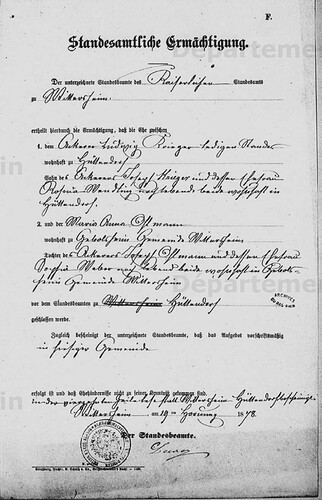 F.
Standesamtliche Ermächtigung.
Der unterzeichnete Standesbeamte des Kaiserlichen Standesamts
zu Wittersheim
ertheilt hierdurch die Ermächtigung, daß die Ehe zwischen
1. dem Ackerer Ludwig Krieger ledigen Standes
wohnhaft zu Hüttendorf
Sohn des Ackerers Joseph Krieger und dessen Ehefrau
Rosina Wendling beide wohnhaft in
Hüttendorf.
2. und der Maria Anna Ostmann
wohnhaft zu Gebolsheim Gemeinde Wittersheim
Tochter des Ackerers Joseph Ostmann und dessen Ehefrau
Sophia Weber beide wohnhaft in Gebols-
heim Gemeinde Wittersheim
vor dem Standesbeamten zu Wittersheim Hüttendorf
geschlossen werde.
Zugleich bescheinigt der unterzeichnete Standesbeamte, daß das Aufgebot vorschriftsmäßig
in hiesiger Gemeinde
erfolgt ist und daß Ehehindernisse nicht zu seiner Kenntniß gekommen sind.
Wittersheim am 19ten Hornung 1878.
Der Standesbeamte.